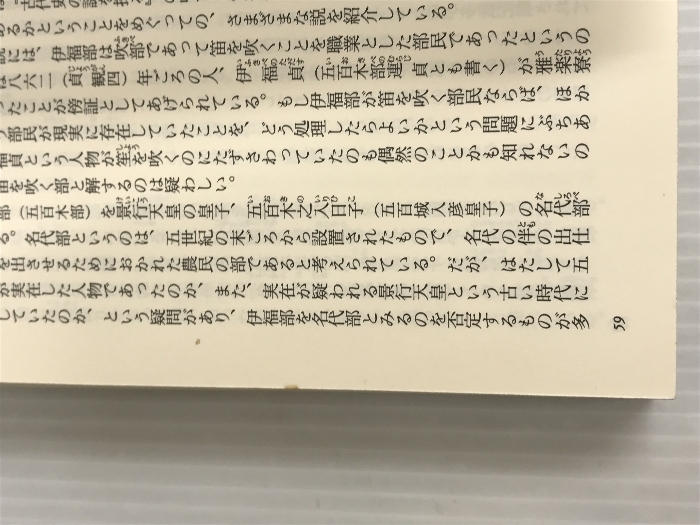 『古代史の謎を探る』の
あるかということをめぐっての、さまざまな説を紹介している。
説は、伊福部は吹部であって笛を吹くことを職業とした部民であったというの
は八六二(貞観四)年ごろの人、伊福貞(五百木部連貞とも書く)が雅楽寮
ったことが傍証としてあげられている。もし伊福部が笛を吹く部民ならば、ほか
う部民が現実に存在していたことを、どう処理したらよいかという問題にぶちあ
福貞という人物が笙を吹くのにたずさわっていたのも偶然のことかも知れないの
笛を吹く部と解するのは疑わしい。
部(五百木部)を景行天皇の皇子、五百木之入日子(五百城入彦皇子)の名代部
る。名代部というのは、五世紀の末ごろから設置されたもので、名代の伴の出仕
を出させるためにおかれた農民の部であると考えられている。だが、はたして五
が実在した人物であったのか、また、実在が疑われる景行天皇という古い時代に
していたのか、という疑問があり、伊福部を名代部とみるのを否定するものが多
59